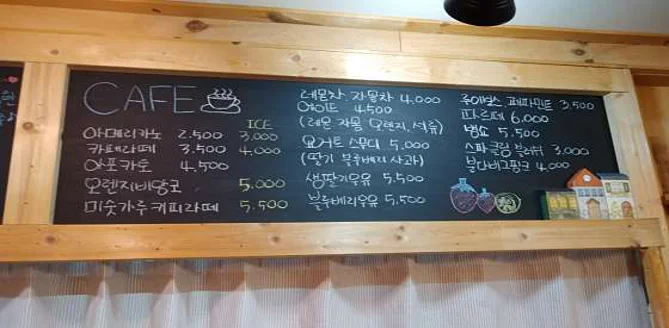 CAFE
ICE
아메리카노 2.500 3,000
카페라떼 3.500 4,000
아포카토 4.500
오렌지비앙코 5.000
미숫가루커피라떼 5.500
레몬차 자몽차 4.000
에이드 4500
(레몬 자몽 오렌지, 석류)
요거트 스무디 5.000
(딸기 블루베리 사과)
생딸기우유 5.500
블루베리우유 5.500
루이보스, 페퍼민트 3,500
파르페 6.000
빙쇼 5.500
3,000
4,000